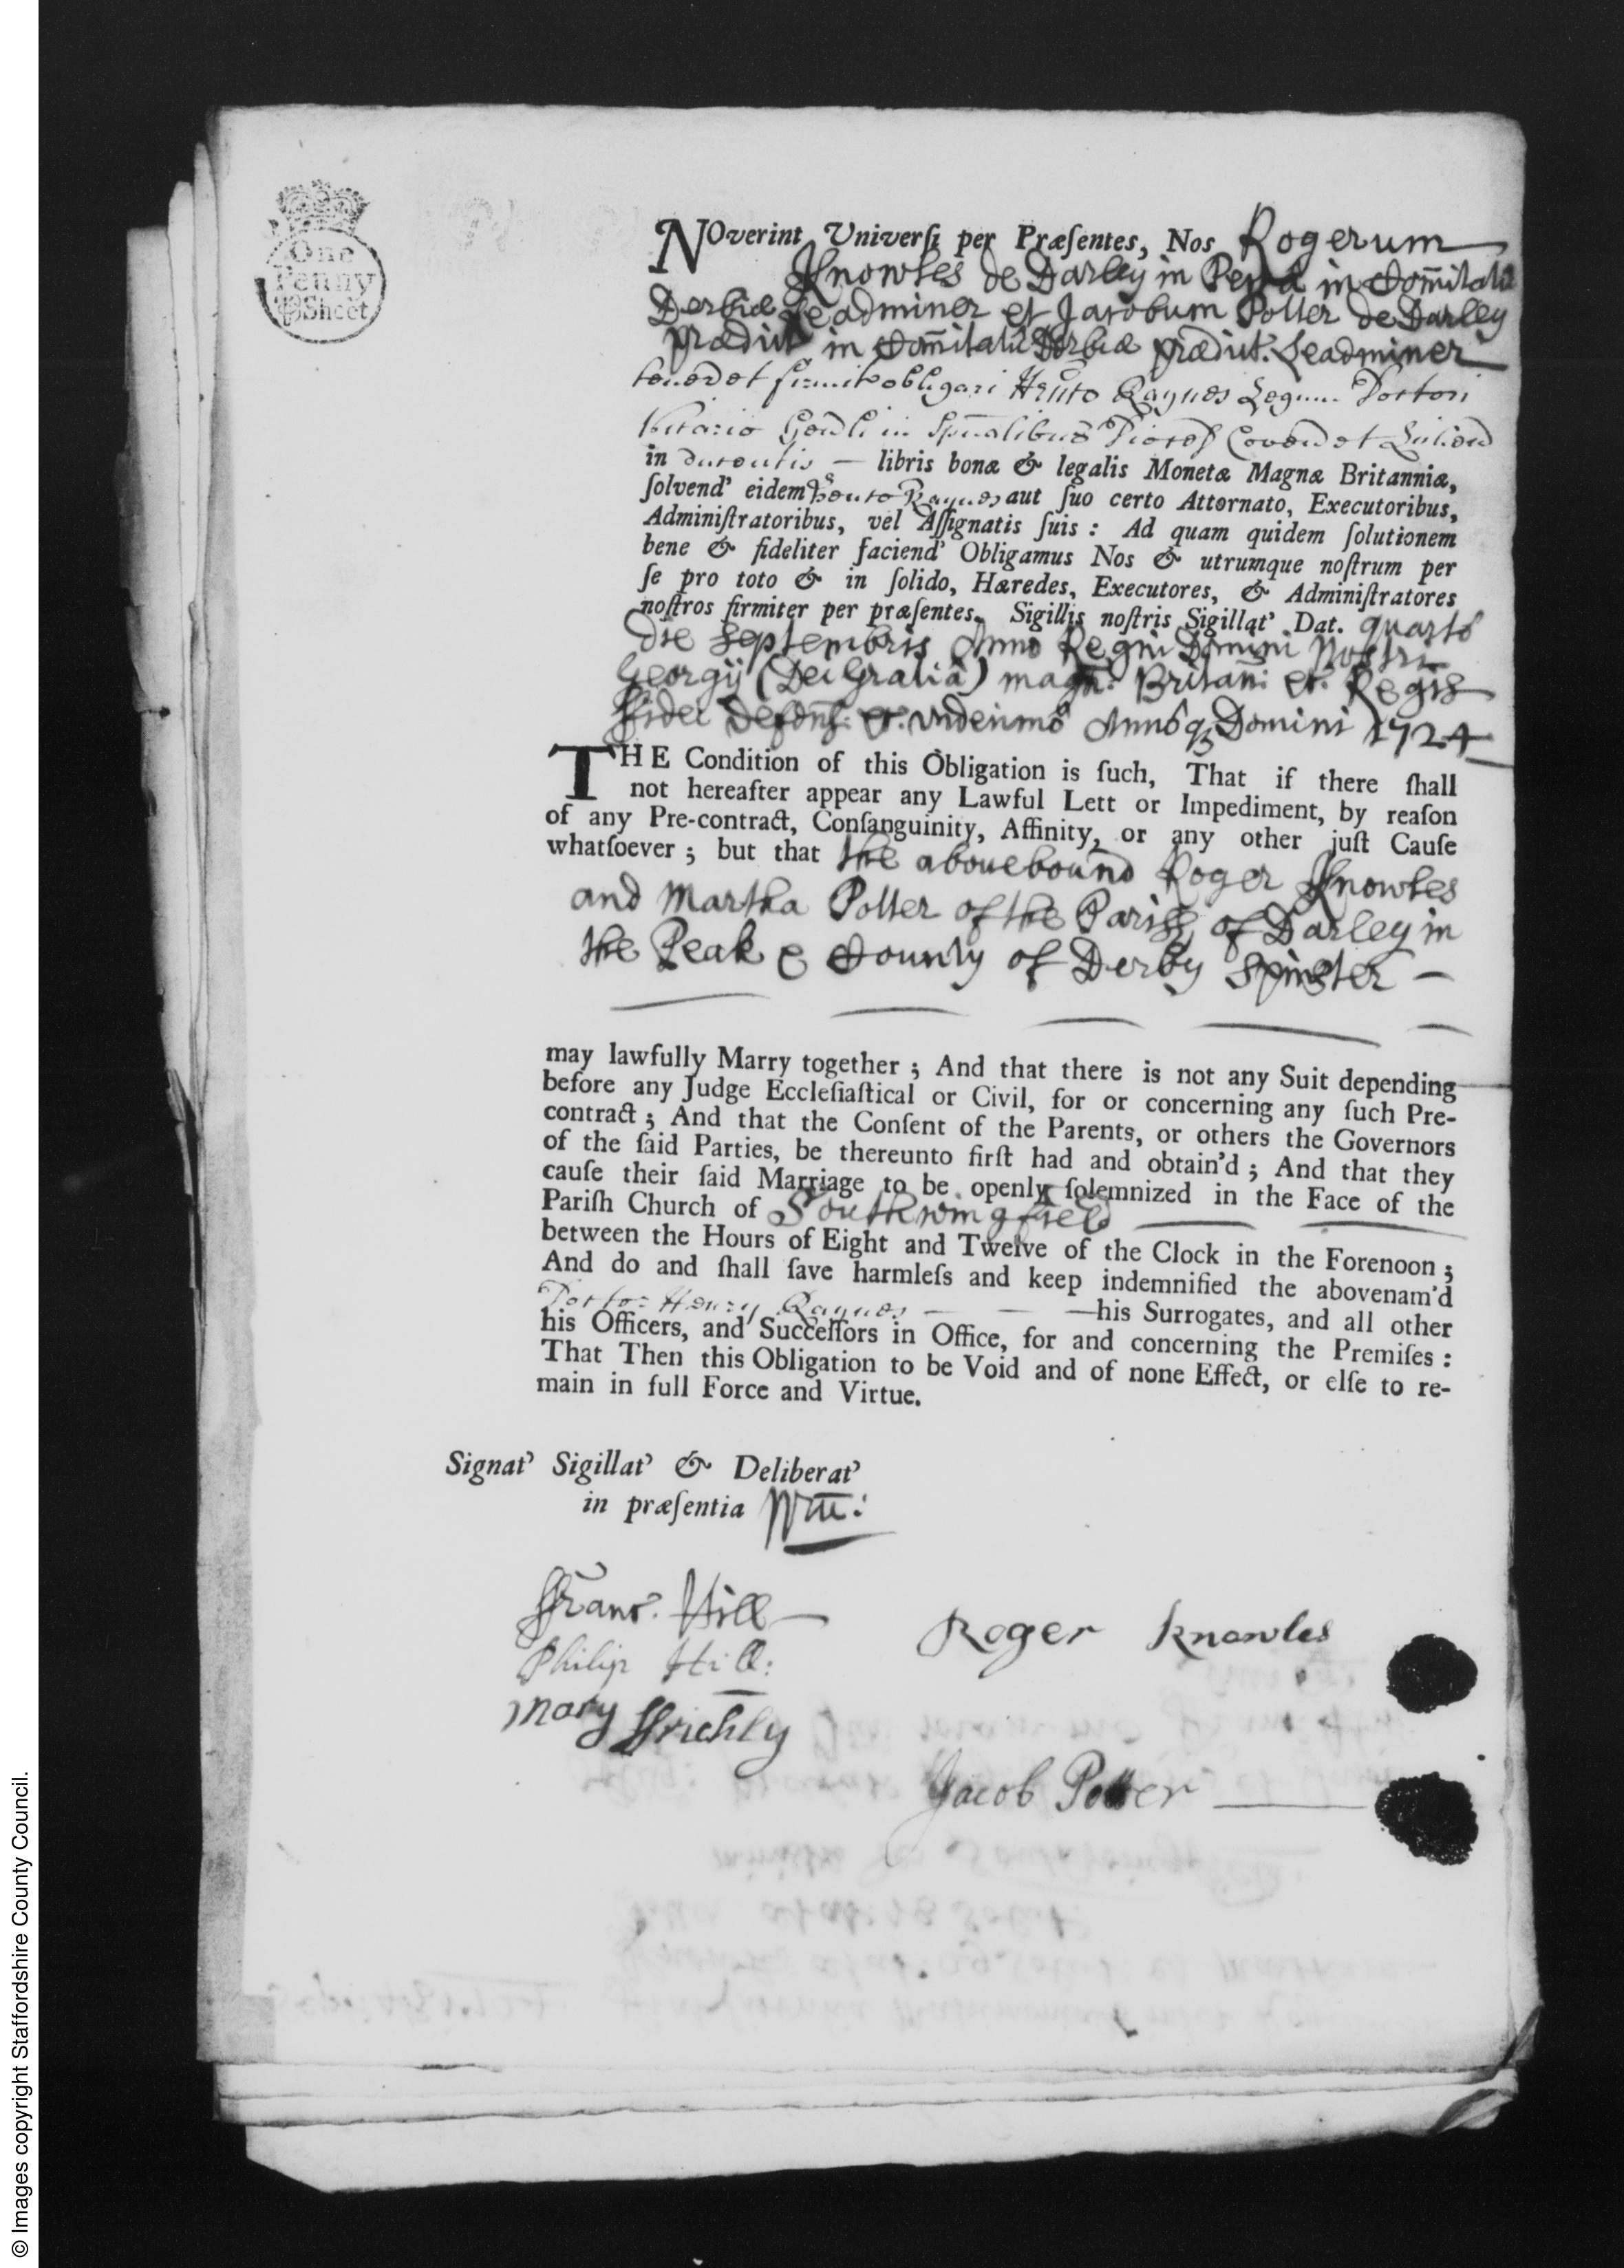 One
Penny
P Sheet
NOverint Universi per Præsentes, Nos Rogerum
Knowles de Darley in in Com̄itatu
Derbiæ Leadminer et Jacobum Potter de Darley
prædict in Com̄itatu Derbiæ prædict. Leadminer
teneri et firmiter obligari Henrico Raynes Legum Doctori
Vicario Gen̄li in Sp̄ualibus Dioces Coven et Lichen
in ducentis — libris bonæ & legalis Monetæ Magnæ Britanniæ,
ſolvend' eidem Henrico Raynes aut ſuo certo Attornato, Executoribus,
Adminiſtratoribus, vel Aſſignatis ſuis : Ad quam quidem ſolutionem
bene & fideliter faciend' Obligamus Nos & utrumque noſtrum per
ſe pro toto & in ſolido, Hæredes, Executores, & Adminiſtratores
noſtros firmiter per præſentes. Sigillis noſtris Sigillat' Dat. quarto
die Septembris Anno Regni Domini Nostri
Georgij (Dei Gratiâ) magn: Britan̄i &c. Regis
ffidei Defens: &c. undecimo Annoq Domini 1724
THE Condition of this Obligation is ſuch, That if there ſhall
not hereafter appear any Lawful Lett or Impediment, by reaſon
of any Pre-contract, Conſanguinity, Affinity, or any other juſt Cauſe
whatſoever ; but that the abouebound Roger Knowles
and Martha Potter of the Parish of Darley in
the Peak & County of Derby Spinster —
may lawfully Marry together ; And that there is not any Suit depending
before any Judge Eccleſiaſtical or Civil, for or concerning any ſuch Pre-
contract ; And that the Conſent of the Parents, or others the Governors
of the ſaid Parties, be thereunto firſt had and obtain'd ; And that they
cauſe their ſaid Marriage to be openly ſolemnized in the Face of the
Pariſh Church of Southwingfield
between the Hours of Eight and Twelve of the Clock in the Forenoon ;
And do and ſhall ſave harmleſs and keep indemnified the abovenam'd
Doctor Henry Raynes — — —his Surrogates, and all other
his Officers, and Succeſſors in Office, for and concerning the Premiſes :
That Then this Obligation to be Void and of none Effect, or elſe to re-
main in full Force and Virtue.
Signat' Sigillat' & Deliberat'
in præſentia
ffranc. Hill
Philip Hill:
Mary
Roger Knowles
Jacob Potter
© Images copyright Staffordshire County Council.